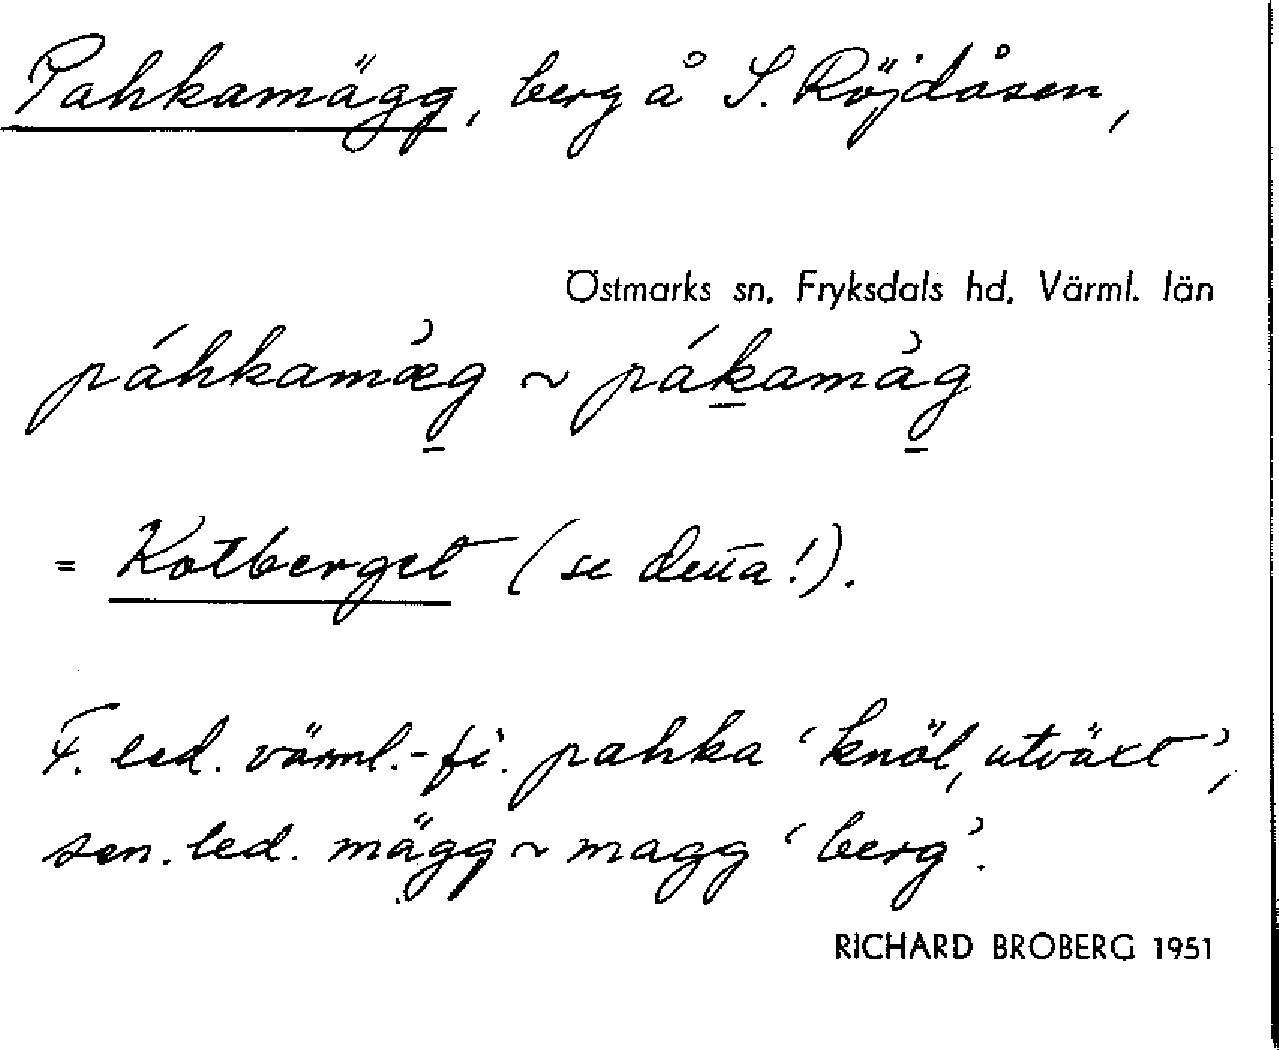 Pahkamägg, berg å S. Röjdåsen,
Östmarks sn. Fryksdals hd. Värml. län
páhkamæ̀g̱ ~ páḵamàg̱
= Kotberget (se detta!).
F. led. värml.-fi. pahka ‘knöl, utväxt’,
sen. led. mägg ~ magg ‘berg’.
RICHARD BROBERG 1951